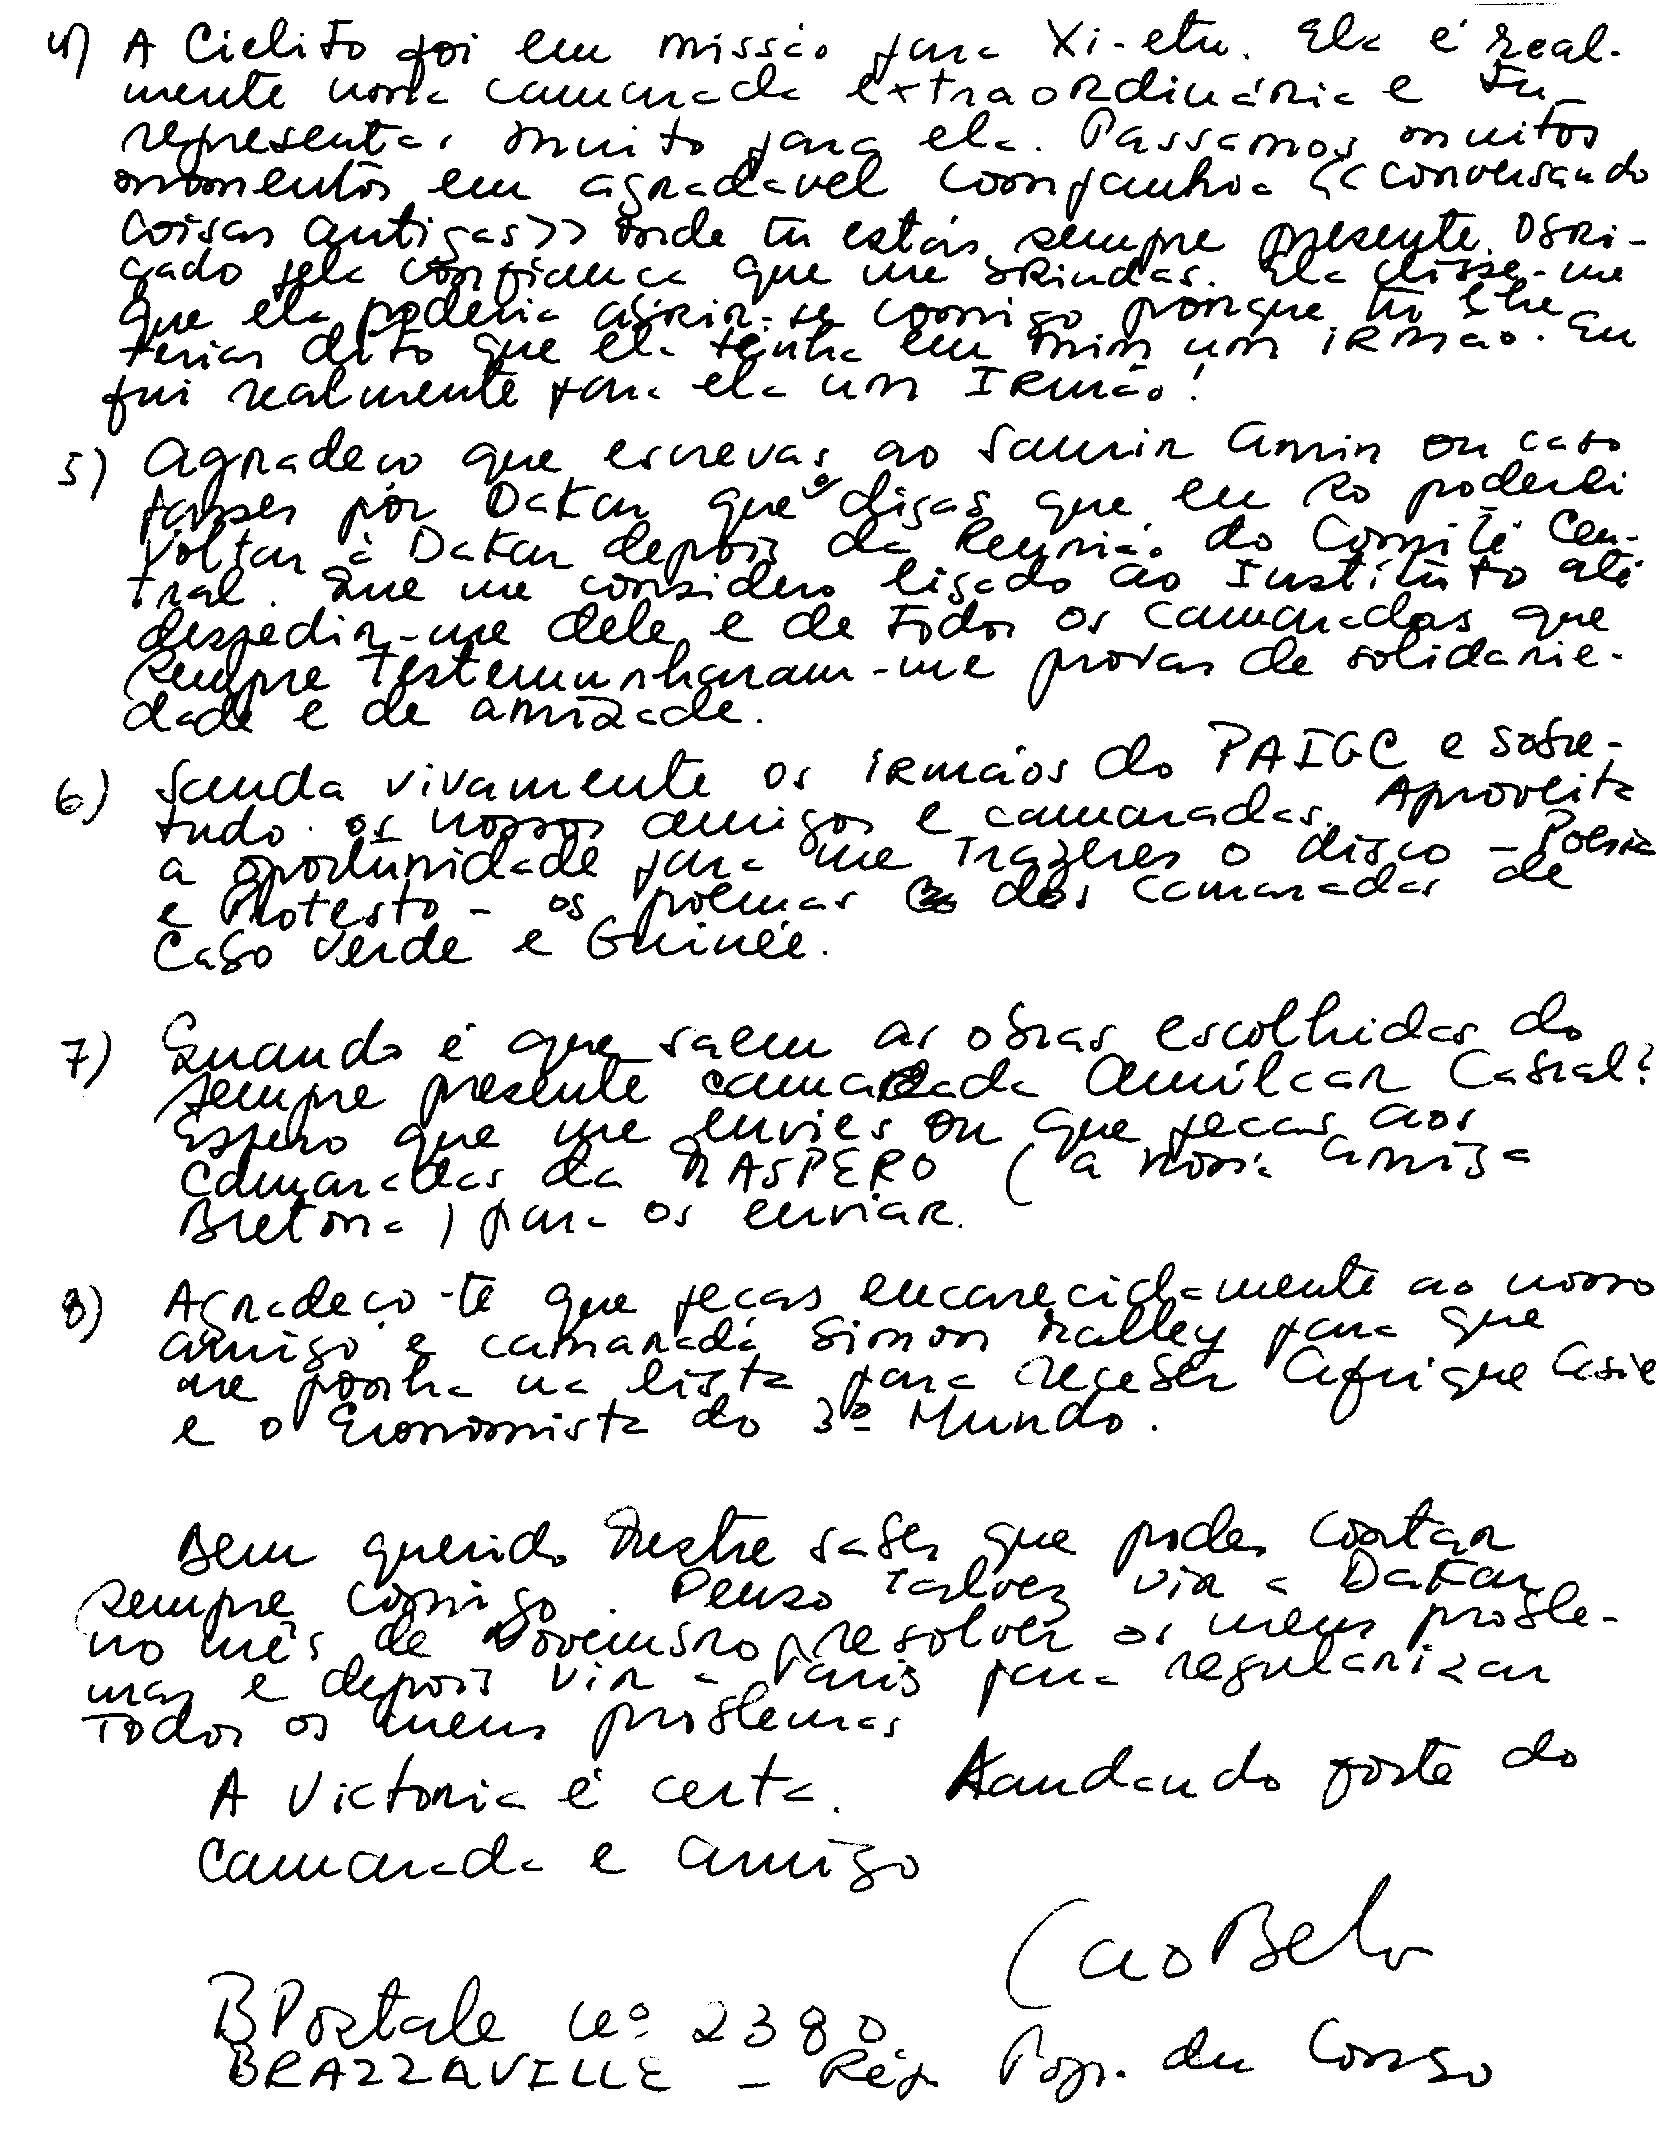 4) A Cielito foi em missão para Xi-etu. Ela é real-
mente nossa camarada extraordinária e tu
representas muito para ela. Passamos muitos
momentos em agradável companhia <<conversando
coisas antigas>> onde tu estás sempre presente. Obri-
gado pela confiança que me brindas. Ela disse-me
que ela poderia abrir-se comigo porque tu lhe
terias dito que ela tenha em mim um irmão. Eu
fui realmente para ela um Irmão!
5) Agradeço que escrevas ao Samir Amin ou caso
passes por Dakar que digas que eu só poderei
voltar à Dakar depois da Reunião do Comité Cen-
tral. Que me considero ligado ao Instituto até
despedir-me dele e de todos os camaradas que
sempre testemunharam-me provas de solidarie-
dade e de amizade.
6) Sauda vivamente os irmãos do PAIGC e sobre-
tudo os nossos amigos e camaradas. Aproveita
a oportunidade para me trazeres o disco - Poesia
e Protesto - os poemas dos camaradas de
Cabo Verde e Guinée.
7) Quando é que saem as obras escolhidas do
sempre presente camarada Amílcar Cabral?
Espero que me envies ou que peças aos
camaradas da MASPERO (a nossa amiga
Bretona) para os enviar.
8) Agradeço-te que peças encarecidamente ao nosso
amigo e camarada Simon Malley para que
me ponha na lista para receber Afrique Asie
e o Economista do 3º Mundo.
Bem querido Mestre sabes que podes contar
sempre comigo. Penso talvez vir a Dakar
no mês de Novembro p/ resolver os meus proble-
mas e depois vir a Paris para regularizar
todos os meus problemas
A Victoria é certa. Kandando forte do
camarada e amigo
CaoBelo
BPostale nº 2380
BRAZZAVILLE - Rép. Pop. du Congo